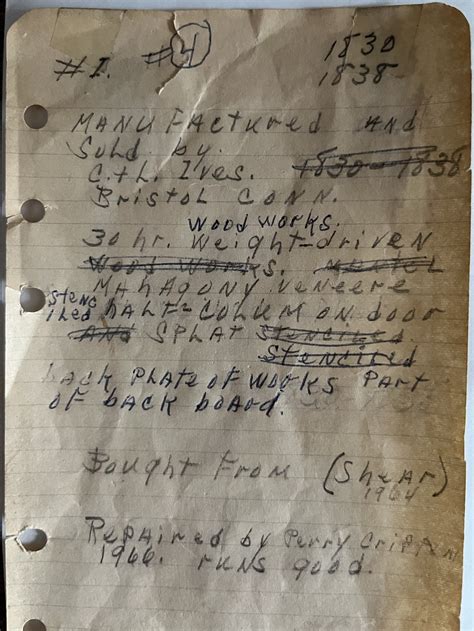 #1. #4 1830
1838
MANUFactured AND
Sold by.
C.+L. Ives. 1830-1838
Bristol CONN.
WOOD WORKS.
30 hr. Weight-driven
WOOD WORKS.
MAHAGONY VENEERE
STENCILED HALF-COLUM ON door
AND SPLAT STENCILED
STENCILED
bACK PLATE OF WORKS PART
OF bACK bOARD.
Bought From (Shear)
1964
Repaired by Perry
1966. runs good.